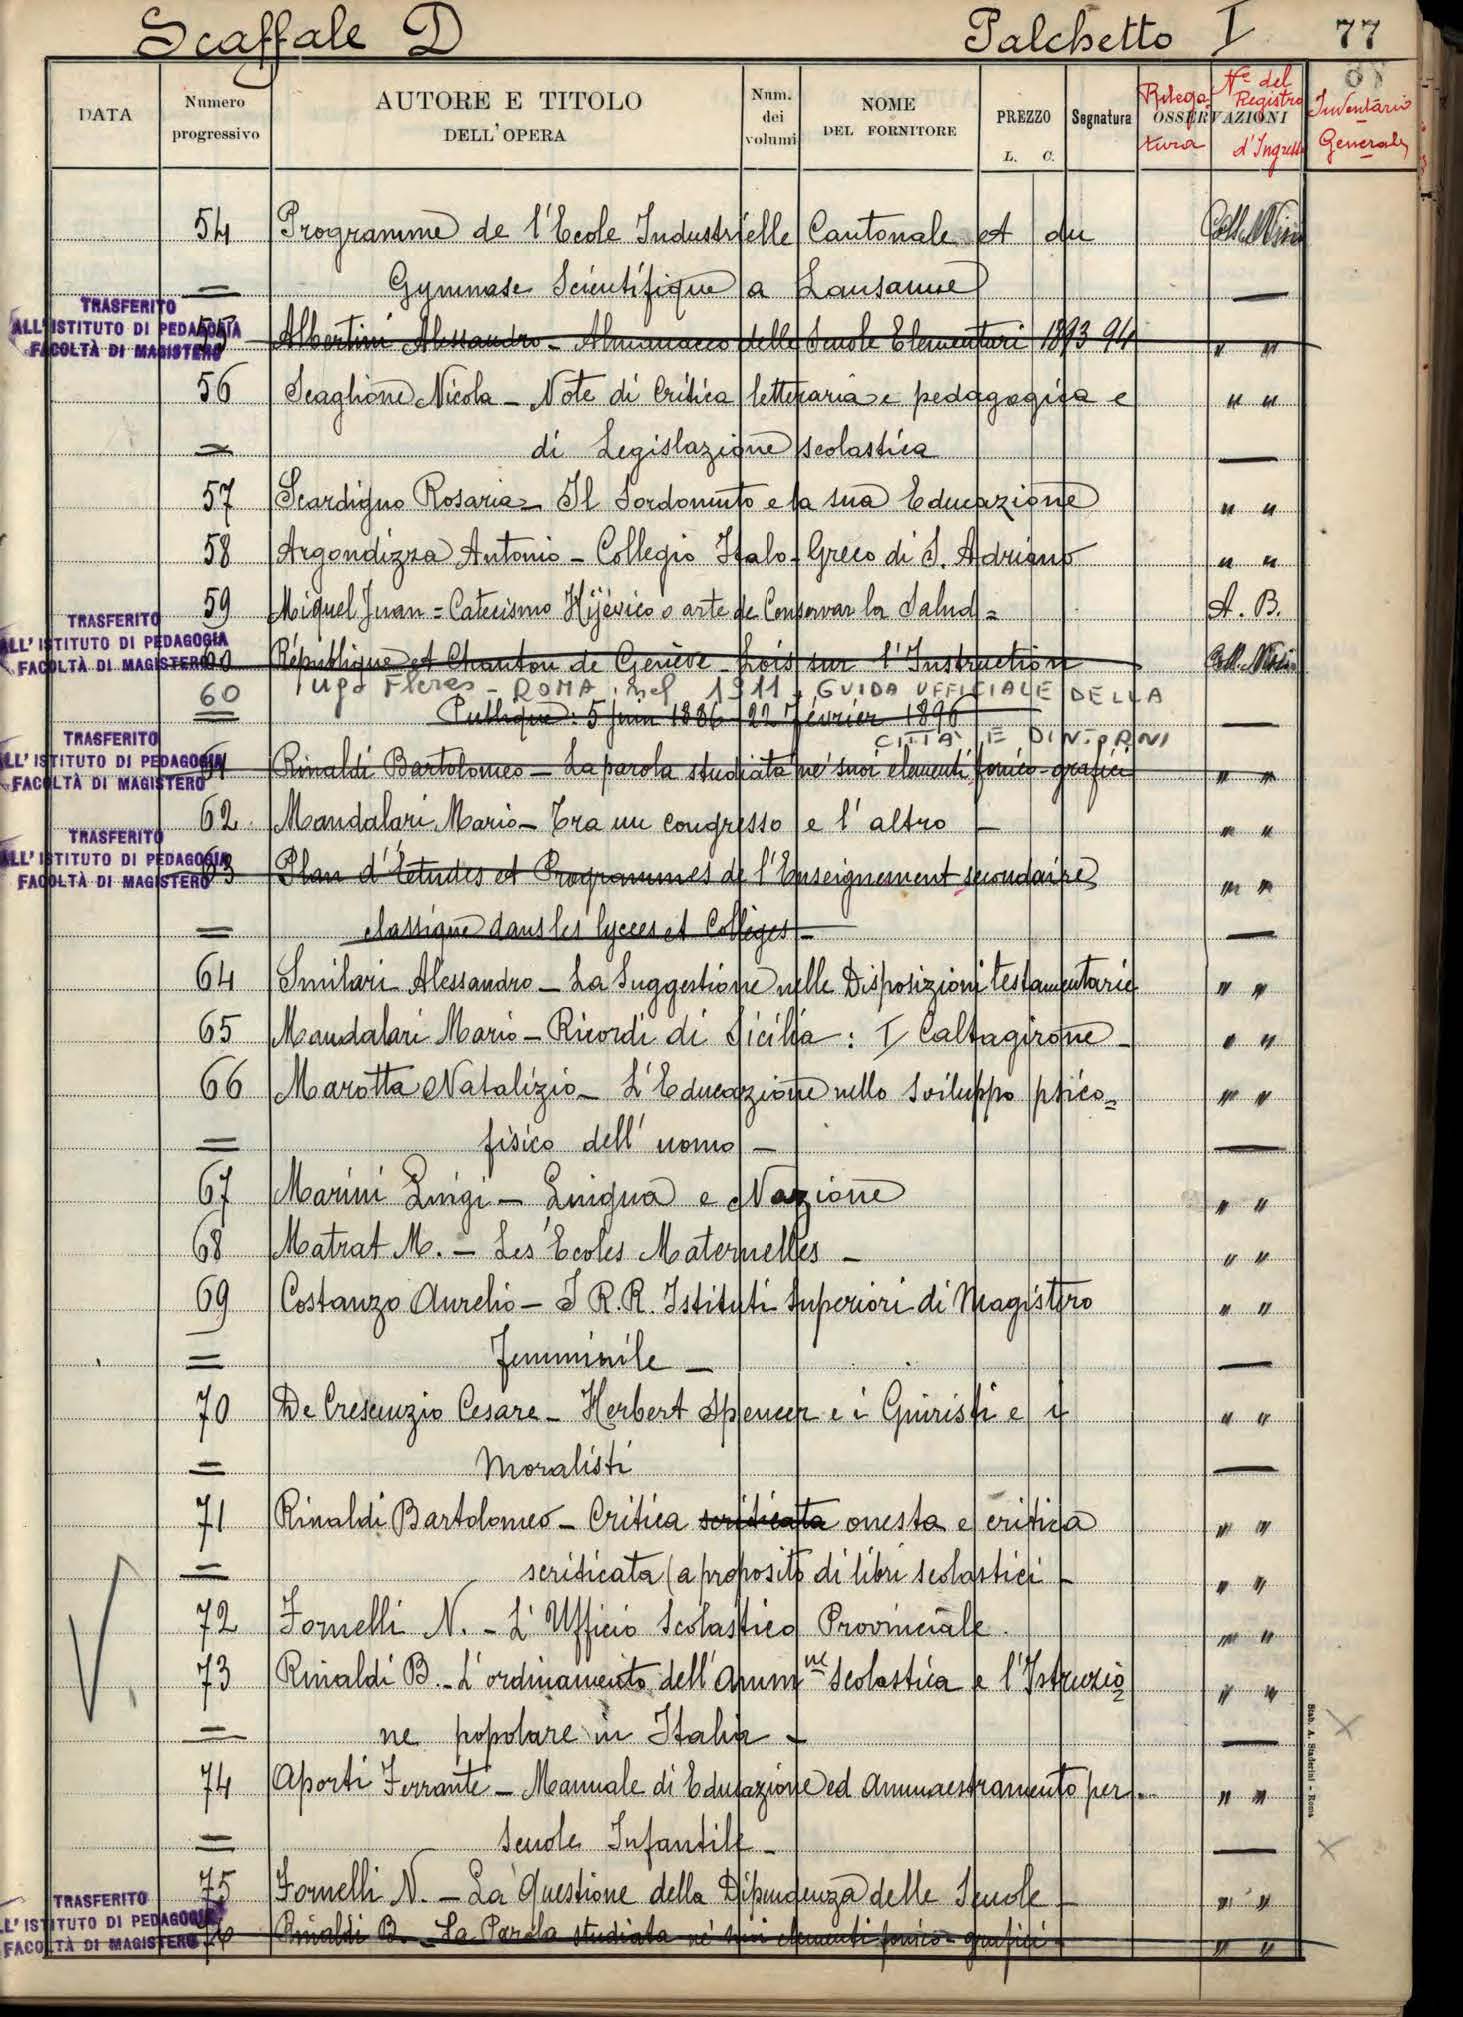 Scaffale D Palchetto I 77
DATA Numero progressivo AUTORE E TITOLO DELL'OPERA Num. dei volumi NOME DEL FORNITORE PREZZO L. C. Segnatura OSSERVAZIONI
Rilegatura Nº del Registro d'Ingresso Inventario Generale
54 Programme de l'Ecole Industrielle Cantonale et du
= Gymnase Scientifique a Lausanne —
TRASFERITO
ALL'ISTITUTO DI PEDAGOGIA
FACOLTÀ DI MAGISTERO
55 Albertini Alessandro - Almanacco delle Scuole Elementari 1893 94 " "
56 Scaglione Nicola - Note di Critica letteraria e pedagogica e " "
= di Legislazione scolastica —
57 Scardigno Rosaria - Il Sordomuto e la sua Educazione " "
58 Argondizza Antonio - Collegio Italo-Greco di S. Adriano " "
59 Miguel Juan = Catecismo Hijévico o arte de Conservar la Salud = A. B.
TRASFERITO
ALL'ISTITUTO DI PEDAGOGIA
FACOLTÀ DI MAGISTERO
60 République et Chanton de Genève - Lois sur l'Instruction
60 Ugo Fleres - ROMA nel 1911 - GUIDA UFFICIALE DELLA
= Publique: 5 Juin 1886 - 22 Février 1896 —
CITTA' E DINTORNI
TRASFERITO
ALL'ISTITUTO DI PEDAGOGIA
FACOLTÀ DI MAGISTERO
61 Rinaldi Bartolomeo - La parola studiata ne' suoi elementi fonico-grafici " "
62 Mandalari Mario - Tra un congresso e l'altro - " "
TRASFERITO
ALL'ISTITUTO DI PEDAGOGIA
FACOLTÀ DI MAGISTERO
63 Plan d'Études et Programmes de l'Enseignement secondaire " "
= classique dans les lycées et Collèges - —
64 Smilari Alessandro - La Suggestione nelle Disposizioni testamentarie " "
65 Mandalari Mario - Ricordi di Sicilia: I Caltagirone - " "
66 Marotta Natalizio - L'Educazione nello Sviluppo psico= " "
= fisico dell'uomo - —
67 Marini Luigi - Lingua e Nazione " "
68 Matrat M. - Les Écoles Maternelles - " "
69 Costanzo Aurelio - I R.R. Istituti Superiori di Magistero " "
= Femminile - —
70 De Crescenzio Cesare - Herbert Spencer e i Giuristi e i " "
= Moralisti —
71 Rinaldi Bartolomeo - Critica scriticata onesta e critica " "
= scriticata (a proposito di libri scolastici - " "
72 Fornelli N. - L'Ufficio Scolastico Provinciale. " "
73 Rinaldi B. - L'ordinamento dell'Amm.ne Scolastica e l'Istruzio= " "
= ne popolare in Italia - —
74 Aporti Ferrante - Manuale di Educazione ed Ammaestramento per " "
= Scuole Infantile - —
75 Fornelli N. - La Questione della Dipendenza delle Scuole - " "
TRASFERITO
ALL'ISTITUTO DI PEDAGOGIA
FACOLTÀ DI MAGISTERO
76 Rinaldi B. - La Parola studiata ne' suoi elementi fonico-grafici - " "
Stab. A. Staderini - Roma